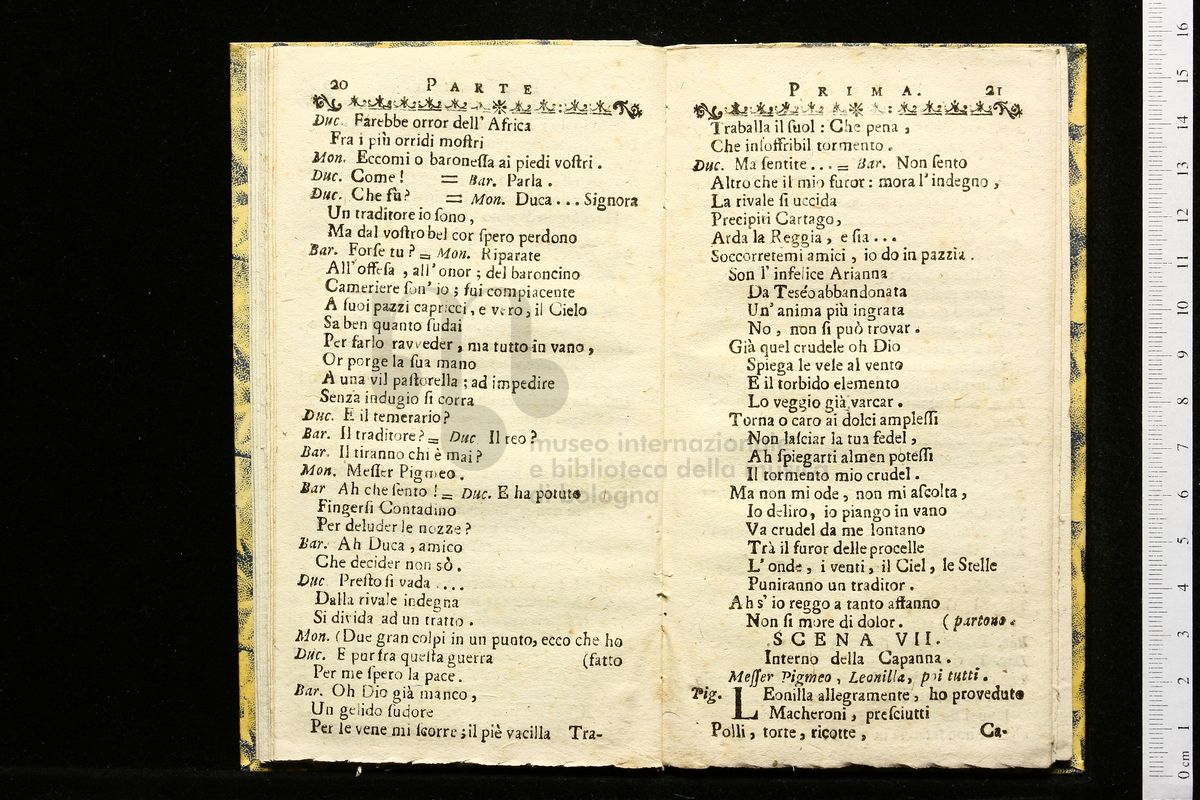 20 PARTE
Duc. Farebbe orror dell' Africa
Fra i più orridi moſtri
Mon. Eccomi o baroneſſa ai piedi voſtri.
Duc. Come! = Bar. Parla.
Duc. Che fù? = Mon. Duca... Signora
Un traditore io ſono,
Ma dal voſtro bel cor ſpero perdono
Bar. Forſe tu? = Mon. Riparate
All' offeſa, all' onor; del baroncino
Cameriere ſon' io; fui compiacente
A ſuoi pazzi capricci, e vero, il Cielo
Sa ben quanto ſudai
Per farlo ravveder, ma tutto in vano,
Or porge la ſua mano
A una vil paſtorella; ad impedire
Senza indugio ſi corra
Duc. E il temerario?
Bar. Il traditore? = Duc Il reo?
Bar. Il tiranno chi è mai?
Mon. Meſſer Pigmeo.
Bar Ah che ſento! = Duc. E ha potuto
Fingerſi Contadino
Per deluder le nozze?
Bar. Ah Duca, amico
Che decider non sò.
Duc Preſto ſi vada ....
Dalla rivale indegna
Si divida ad un tratto.
Mon. (Due gran colpi in un punto, ecco che ho
Duc. E pur fra queſta guerra (fatto
Per me ſpero la pace.
Bar. Oh Dio già manco,
Un gelido ſudore
Per le vene mi ſcorre; il piè vacilla Tra-
PRIMA. 21
Traballa il ſuol: Che pena,
Che inſoffribil tormento.
Duc. Ma ſentite... = Bar. Non ſento
Altro che il mio furor: mora l' indegno,
La rivale ſi uccida
Precipiti Cartago,
Arda la Reggia, e ſia...
Soccorretemi amici, io do in pazzia.
Son l' infelice Arianna
Da Teséo abbandonata
Un' anima più ingrata
No, non ſi può trovar.
Già quel crudele oh Dio
Spiega le vele al vento
E il torbido elemento
Lo veggio già varcar.
Torna o caro ai dolci ampleſſi
Non laſciar la tua fedel,
Ah ſpiegarti almen poteſſi
Il tormento mio crudel.
Ma non mi ode, non mi aſcolta,
Io deliro, io piango in vano
Va crudel da me lontano
Trà il furor delle procelle
L' onde, i venti, il Ciel, le Stelle
Puniranno un traditor.
Ah s' io reggo a tanto affanno
Non ſi more di dolor. (partono.
SCENA VII.
Interno della Capanna.
Meſſer Pigmeo, Leonilla, poi tutti.
Pig. LEonilla allegramente, ho proveduto
Macheroni, preſciutti
Polli, torte, ricotte, Ca-
museo internazionale
e biblioteca della musica
di bologna
0 cm 1 2 3 4 5 6 7 8 9 10 11 12 13 14 15 16